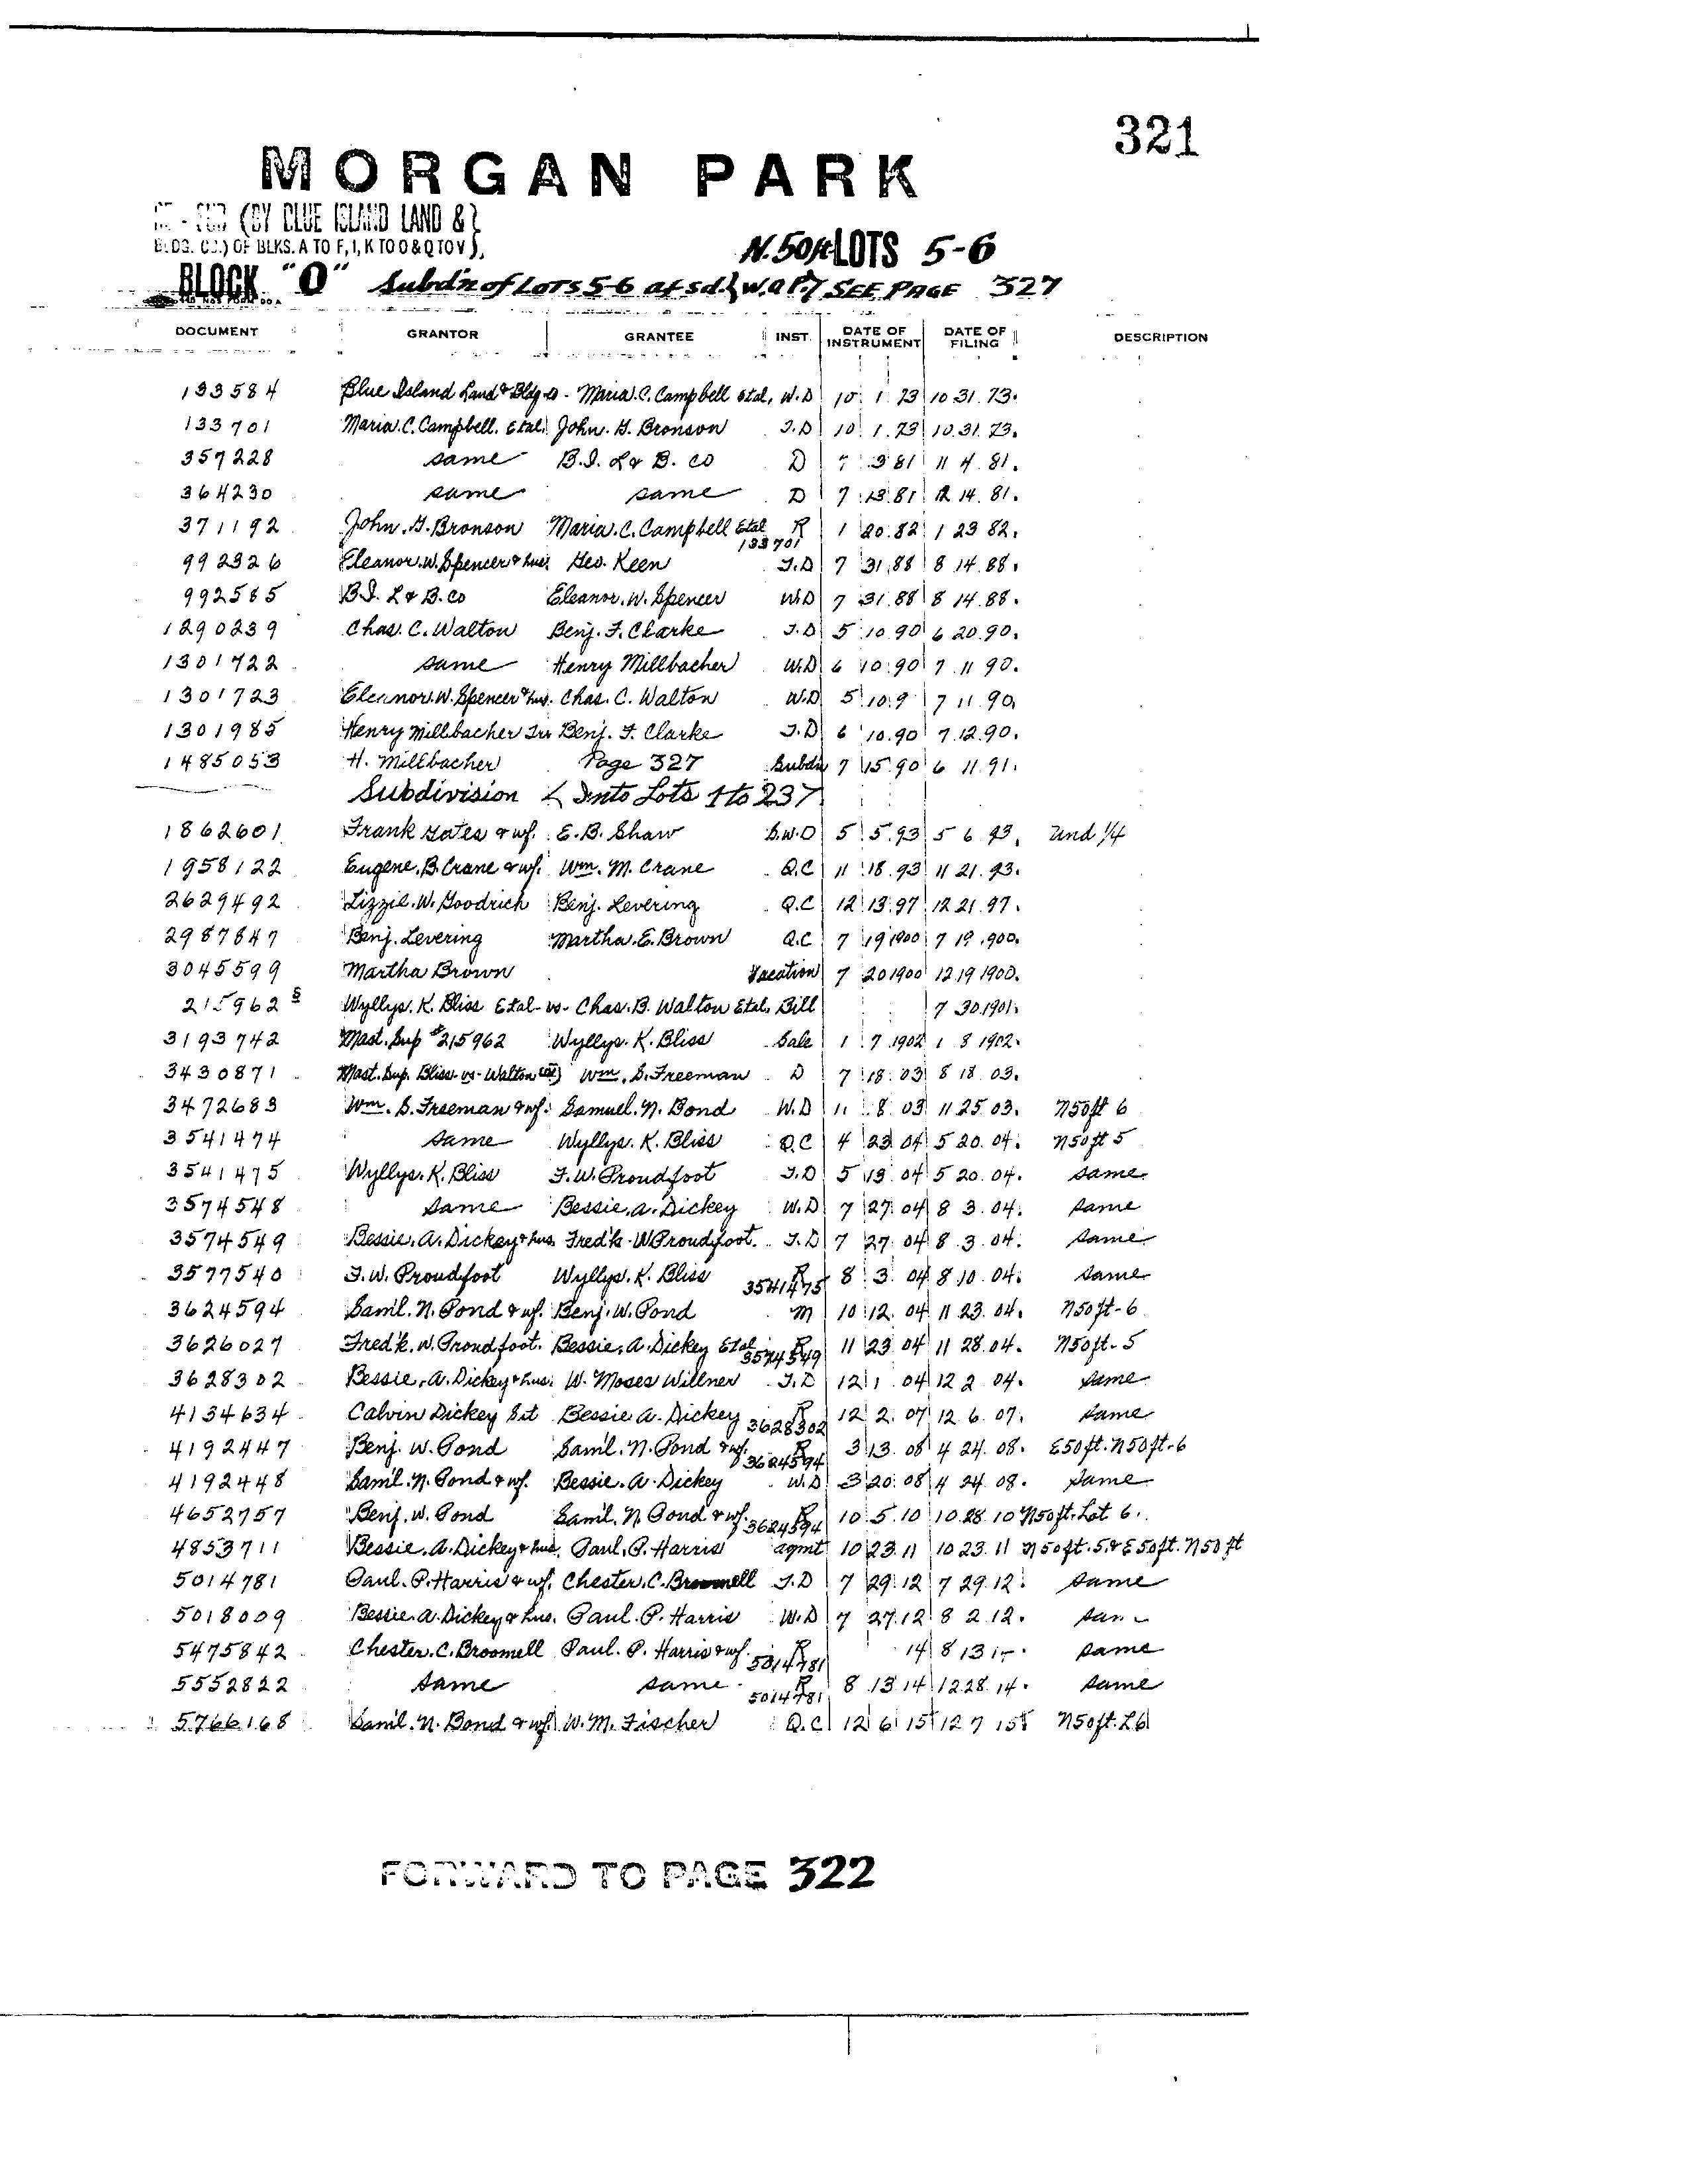 321
MORGAN PARK
RE-SUB (BY BLUE ISLAND LAND & }
BLDG. CO.) OF BLKS. A TO F, I, K TO O & Q TO V ),
N. 50 ft LOTS 5-6
BLOCK "O" Subd'n of LOTS 5-6 SEE PAGE 327
DOCUMENT GRANTOR GRANTEE INST. DATE OF INSTRUMENT DATE OF FILING DESCRIPTION
133584 Blue Island Land & Bldg Co - Maria. C. Campbell etal, W.D 10 1 73 10 31. 73.
133701 Maria. C. Campbell. Etal. John. G. Bronson T.D 10 1. 73 10. 31. 73.
357228 same B.I. L & B. co D 7 81 11 4. 81.
364230 same same D 7 13 81 14. 81.
371192 John. G. Bronson Maria. C. Campbell Etal R 133701 1 20. 82 1 23 82.
992326 Eleanor. W. Spencer & hus. Geo. Keen T.D 7 31. 88 8 14. 88.
992585 B.I. L & B. co Eleanor. W. Spencer W.D 7 31. 88 8 14. 88.
1290239 Chas. C. Walton Benj. F. Clarke T.D 5 10. 90 6 20. 90.
1301722 same Henry Millbacher W.D 6 10. 90 7. 11 90.
1301723 Eleanor. W. Spencer & hus. Chas. C. Walton W.D 5 10. 9 7 11. 90.
1301985 Henry Millbacher Benj. F. Clarke T.D 6 10. 90 7. 12. 90.
1485053 H. Millbacher Page 327 Subdn 7 15. 90 6 11 91.
Subdivision < Into Lots 1 to 23 >
1862601 Frank Gates & wf. E. B. Shaw S.W.D 5 5. 93 5 6. 93. Und 1/4
1958122 Eugene. B. Crane & wf. Wm. M. Crane Q.C 11 18. 93 11 21. 93.
2629492 Lizzie. W. Goodrich Benj. Levering Q.C 12 13. 97 12 21. 97.
2987847 Benj. Levering Martha. E. Brown Q.C 7 19 1900 7 19. 1900.
3045599 Martha Brown Vacation 7 20 1900 12. 19 1900.
215962 S Wyllys. K. Bliss Etal - vs - Chas. B. Walton Etal. Bill 7 30. 1901.
3193742 Mast. Sup #215962 Wyllys. K. Bliss Sale 1 7. 1902 1 8 1902.
3430871 Mast. Sup. Bliss - vs - Walton Wm. S. Freeman D 7 18. 03 8 18 03.
3472683 Wm. S. Freeman & wf. Samuel. N. Bond W.D 11 8 03 11 25 03. N50ft 6
3541474 same Wyllys. K. Bliss Q.C 4 23 04 5 20. 04. N50ft 5
3541475 Wyllys. K. Bliss F. W. Proudfoot T.D 5 04 5 20. 04. same
3574548 same Bessie. A. Dickey W.D 7 27 04 8 3. 04. same
3574549 Bessie. A. Dickey & hus. Fred'k - W Proudfoot. T.D 7 27. 04 8. 3. 04. same
3577540 F. W. Proudfoot Wyllys. K. Bliss R 3541475 8 3. 04 8. 10. 04. same
3624594 Saml. N. Pond & wf. Benj. W. Pond M 10 12. 04 11 23. 04. N50ft-6
3626027 Fred'k. W. Proudfoot. Bessie. A. Dickey Etal R 3574549 11 23. 04 11 28. 04. N50ft-5
3628302 Bessie. A. Dickey & hus. W. Moses Willner T.D 12 1. 04 12 2 04. same
4134634 Calvin Dickey Bessie A. Dickey R 3628302 12 2. 07 12 6. 07. same
4192447 Benj. W. Pond Saml. N. Pond & wf. R 3624594 3 13. 08 4 24. 08. E50ft. N50ft-6
4192448 Saml. N. Pond & wf. Bessie. A. Dickey W.D 3 20. 08 4 24. 08. same
4652757 Benj. W. Pond Saml. N. Pond & wf. R 3624594 10 5. 10 10. 28. 10 N50ft. Lot 6.
4853711 Bessie. A. Dickey & hus. Paul. P. Harris agmt 10 23. 11 10 23. 11 N50ft. 5. & E50ft. N50ft
5014781 Paul. P. Harris & wf. Chester. C. Broomell T.D 7 29. 12 7 29. 12. same
5018009 Bessie. A. Dickey & hus. Paul. P. Harris W.D 7 27. 12 8 2. 12. same
5475842 Chester. C. Broomell Paul. P. Harris & wf. R 5014781 14 8 13 same
5552822 same same R 5014781 8 13 14 12 28. 14. same
5766168 Saml. N. Bond & wf. W. M. Fischer Q.C 12 6 15 12 7 15 N50ft. L6
FORWARD TO PAGE 322